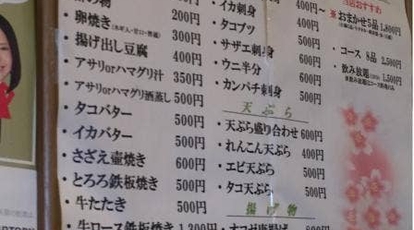 の物 200円
・卵焼き 300円
・揚げ出し豆腐 400円
・アサリorハマグリ汁 350円
・アサリorハマグリ酒蒸し 500円
・タコバター 500円
・イカバター 500円
・さざえ壷焼き 600円
・とろろ鉄板焼き 500円
・牛たたき 500円
・牛ロース鉄板焼き 1,300円
・イカ刺身 400円～
・タコブツ
・サザエ刺身 500円～
・ウニ半分 600円～
・カンパチ刺身 500円
天ぷら
・天ぷら盛り合わせ 600円
・れんこん天ぷら 400円
・エビ天ぷら 500円
・タコ天ぷら 500円
揚げ物
おすすめ
・おまかせ5品 1,800円
・コース 8品
・飲み放題 1,500円